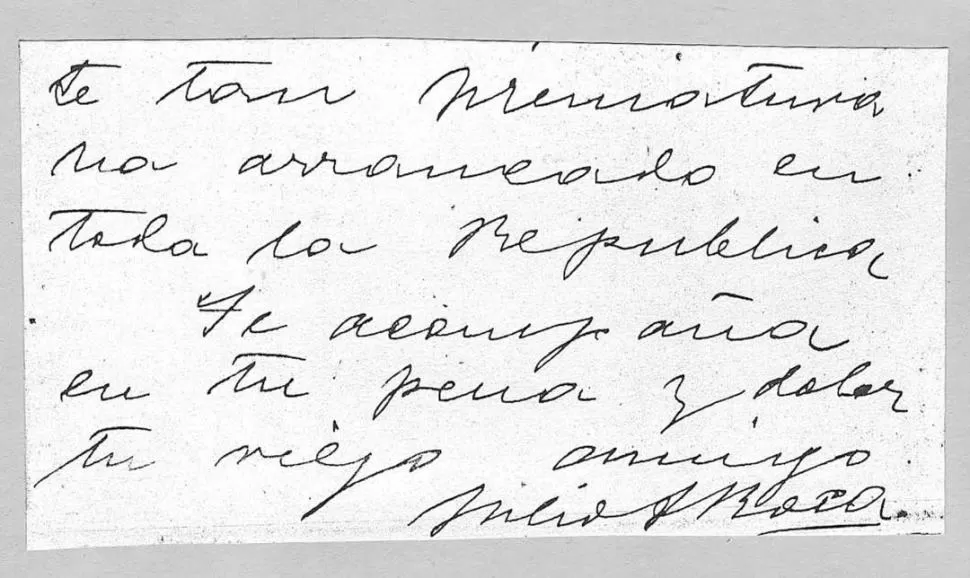 te tan prematura
ha arrancado en
toda la Republica
Te acompaña
en tu pena y dolor
tu viejo amigo
Julio A Roca